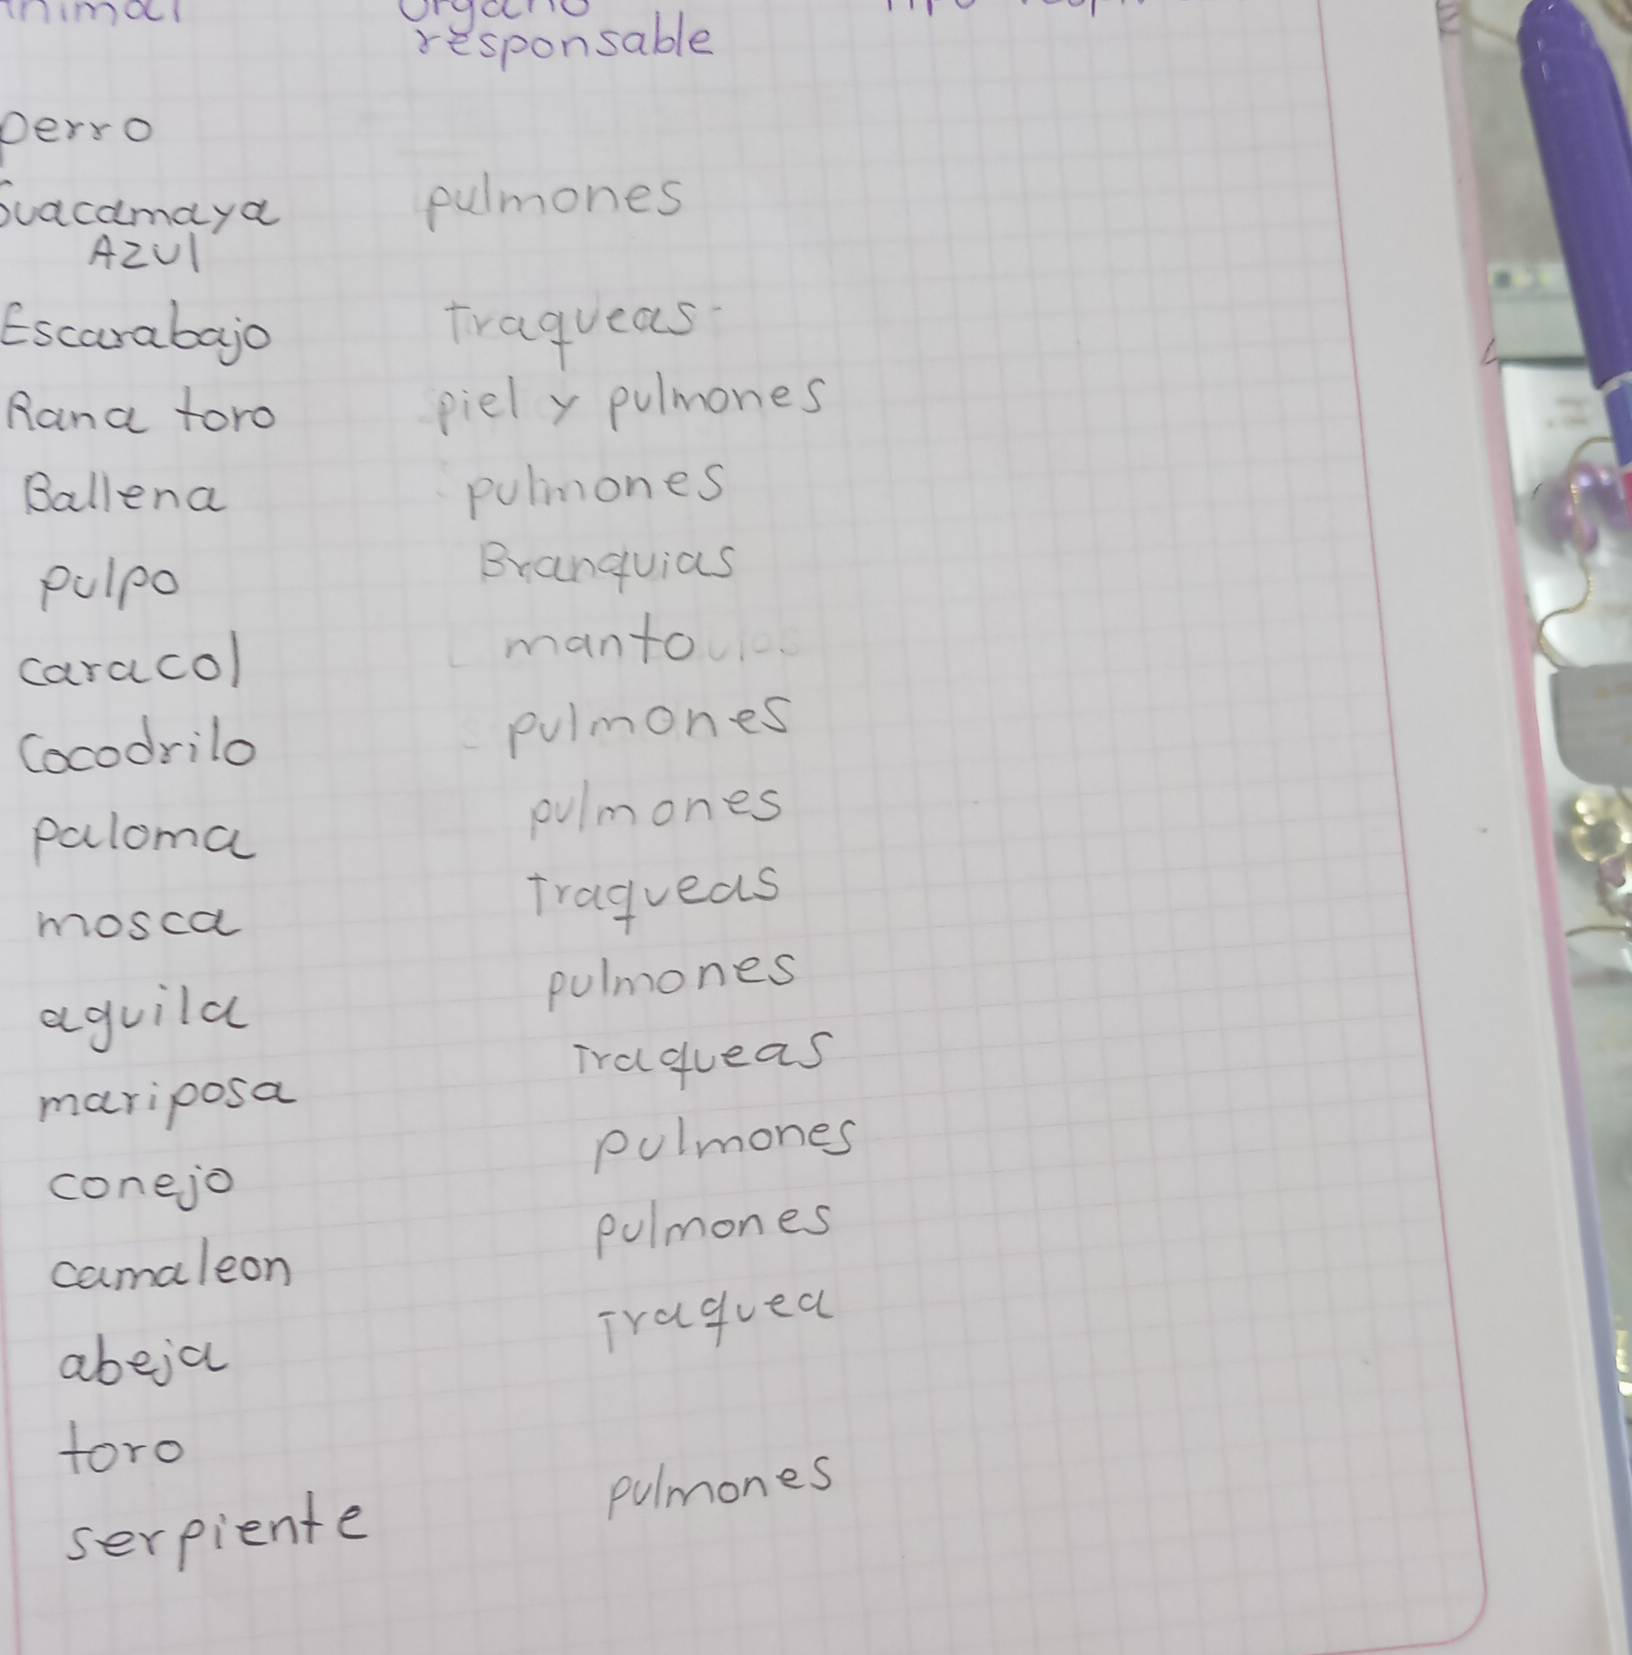 responsable
perro
Guacamaya pulmones
AZUl
Escarabajo Traqueas
Rana toro piel y pulmones
Ballena pulmones
pulpo Branquias
caracol manto
Cocodrilo pulmones
paloma pulmones
mosca Traqueas
aguila pulmones
mariposa Traqueas
conejo pulmones
camaleon pulmones
abeja Traquea
toro
serpiente pulmones